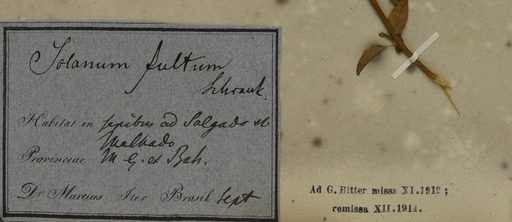 Solanum fultum
Schrank.
Habitat in sepibus ad Salgado et
Malhado
Provinciae M. G. et Bah.
Dr. Martius Iter Brasil. Sept
Ad G. Bitter missa XI.1912;
remissa XII.1914.